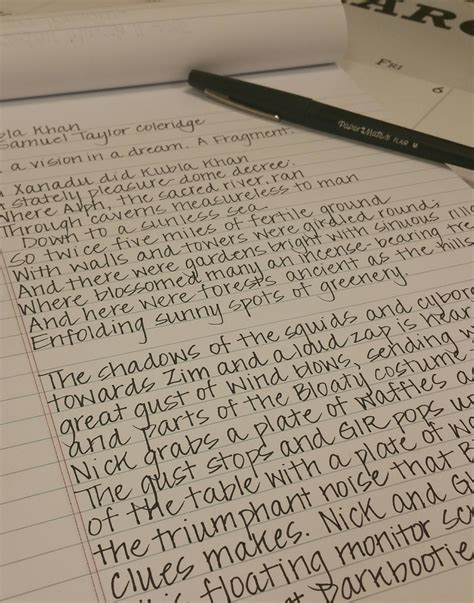 ARC
FRI
6
PaperMate FLAIR M
bla Khan
Samuel Taylor Coleridge
a vision in a dream. A Fragment.
Xanadu did Kubla Khan
stately pleasure-dome decree:
Where Alph, the sacred river, ran
Through caverns measureless to man
Down to a sunless sea
So twice five miles of fertile ground
With walls and towers were girdled round;
And there were gardens bright with sinuous rill
Where blossomed many an incense-bearing tree
And here were forests ancient as the hills
Enfolding sunny spots of greenery.
The shadows of the squids and cybor
towards Zim and a loud zap is hear
great gust of wind blows, sending
and parts of the Bloaty costume
Nick grabs a plate of waffles as
The gust stops and GIR pops u
of the table with a plate of wa
the triumphant noise that B
clues makes. Nick and G
floating monitor sc
Darkbootie